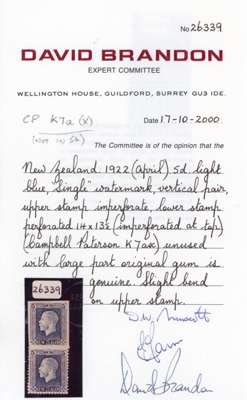 No 26339
DAVID BRANDON
EXPERT COMMITTEE
WELLINGTON HOUSE, GUILDFORD, SURREY GU3 1DE.
CP K7a (x)
Date 17-10-2000
The Committee is of the opinion that the
New Zealand 1922 (April) 5d light
blue, "Single" watermark, vertical pair,
upper stamp imperforate, lower stamp
perforated 14 x 13½ (imperforate at top)
(Campbell Paterson K7ax) unused
with large part original gum is
genuine. Slight bend
on upper stamp.
26339
David Brandon